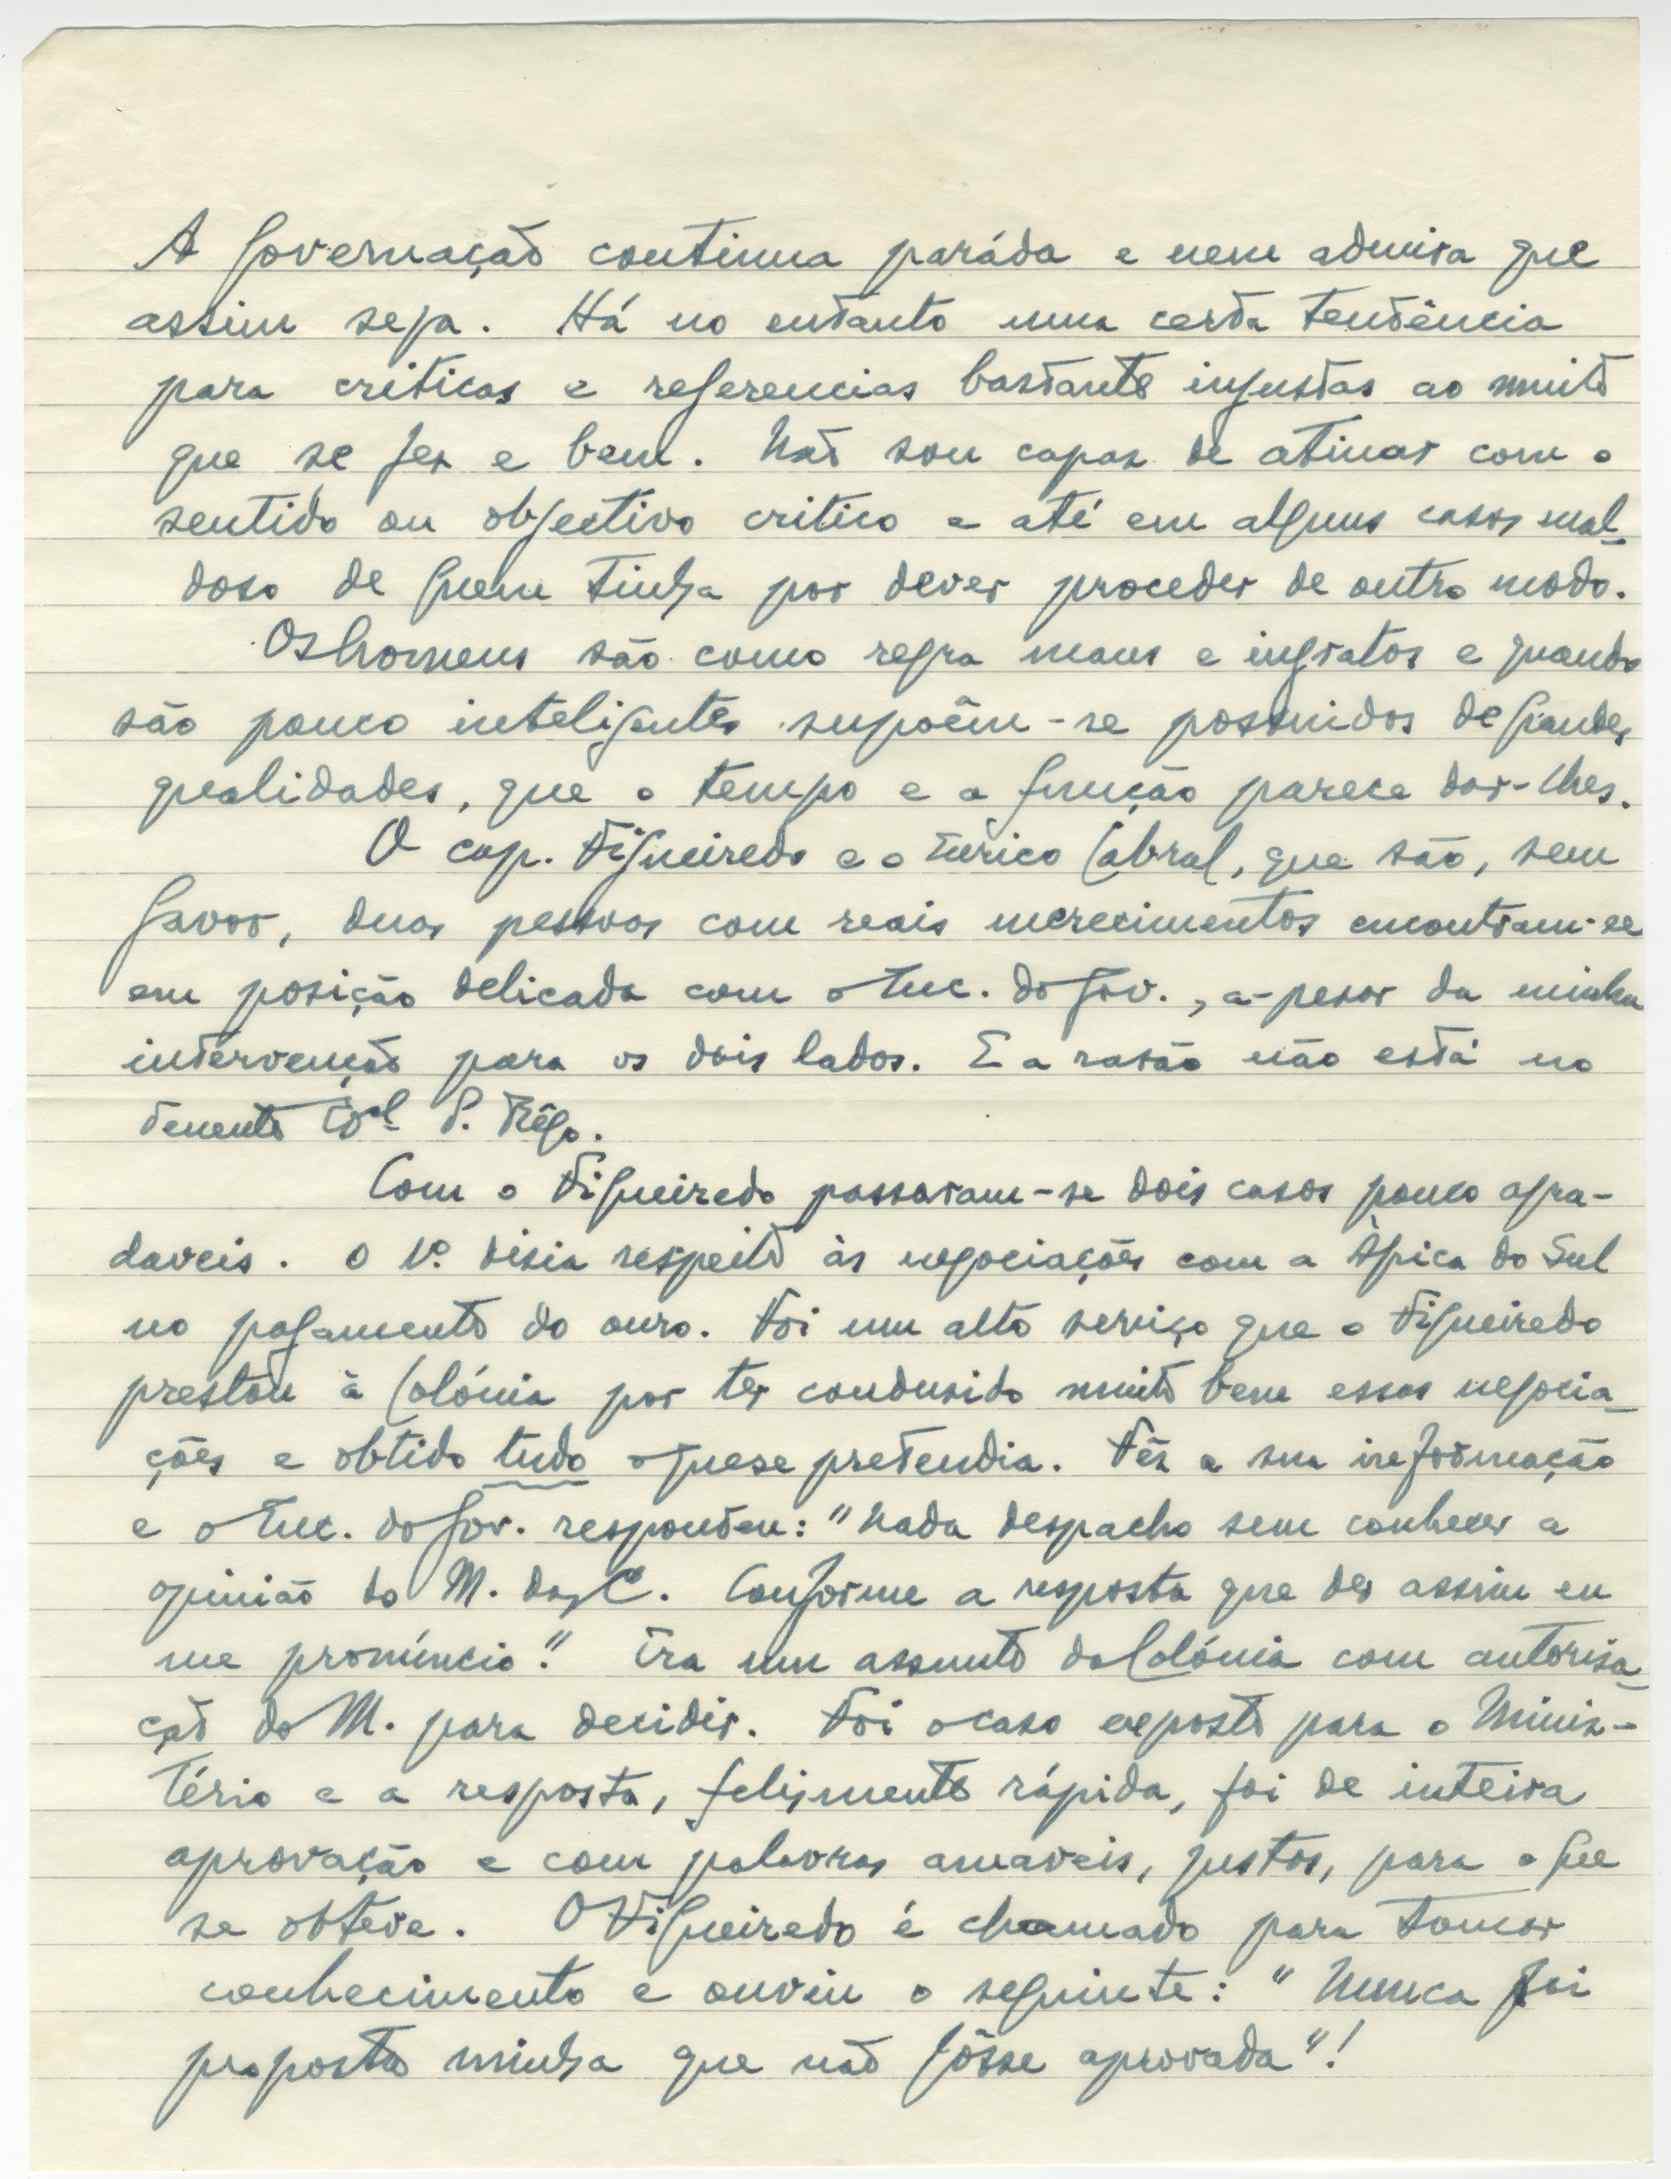 A Governação continua paráda e nem admira que
assim seja. Há no entanto uma certa tendência
para criticas e referencias bastante injustas ao muito
que se fez e bem. Não sou capaz de atinar com o
sentido ou objectivo critico e até em alguns casos mal-
doso de quem tinha por dever proceder de outro modo.
Os homens são como regra maus e ingratos e quando
são pouco inteligentes supoêm-se possuidos de grandes
qualidades, que o tempo e a função parece dar-lhes.
O cap. Figueiredo e o Eurico Cabral, que são, sem
favor, duas pessoas com reais merecimentos encontram-se
em posição delicada com o Enc. do Gov., a-pesar da minha
intervenção para os dois lados. E a rasão não está no
tenente Cel. P. Rêgo.
Com o Figueiredo passaram-se dois casos pouco agra-
daveis. O 1º. disia respeito às negociações com a Àfrica do Sul
no pagamento do ouro. Foi um alto serviço que o Figueiredo
prestou à Colónia por ter condusido muito bem essas negocia-
ções e obtido tudo o que se pretendia. Fêz a sua informação
e o Enc. do Gov. respondeu: "Nada despacho sem conhecer a
opinião do M. das C. Conforme a resposta que der assim eu
me pronúncio." Era um assunto da Colónia com autorisa-
ção do M. para decidir. Foi o caso exposto para o Minis-
tério e a resposta, felizmente rápida, foi de inteira
aprovação e com palavras amaveis, justas, para o que
se obteve. O Figueiredo é chamado para tomar
conhecimento e ouviu o seguinte: "Nunca foi
proposta minha que não fôsse aprovada"!